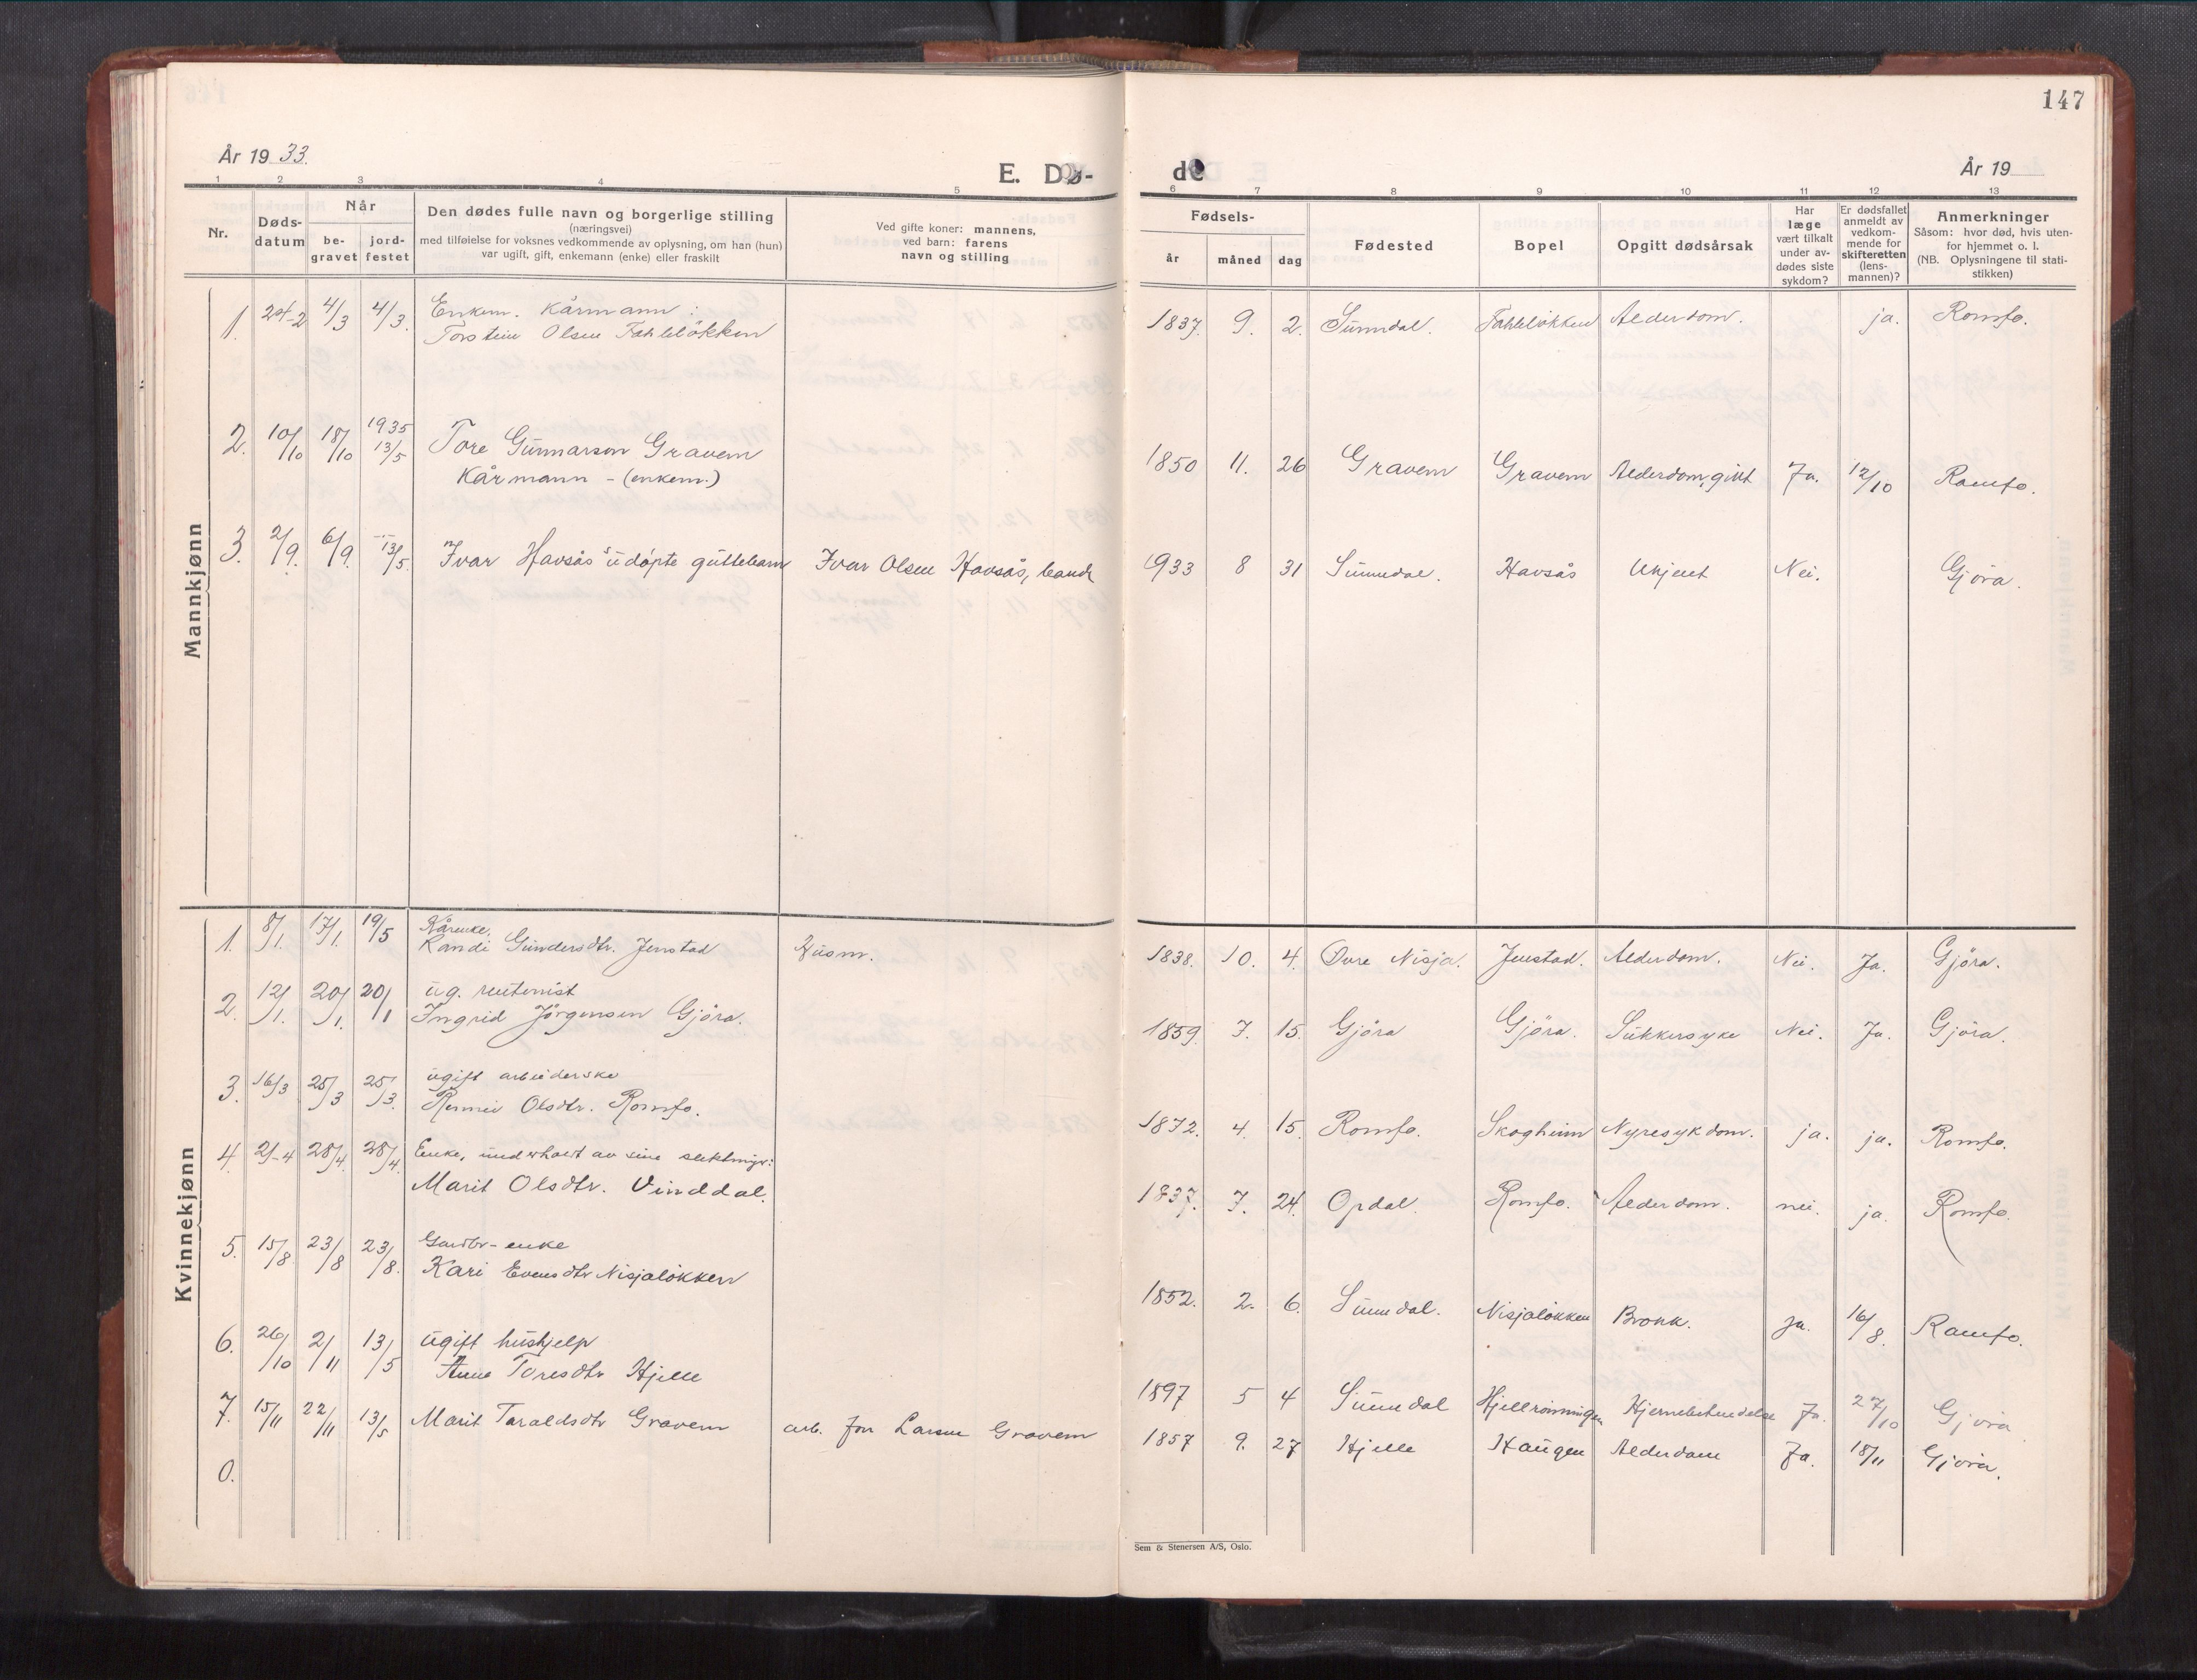 147
År 19 33.
E. Dø-
de
År 19
1 2 3 4 5 6 7 8 9 10 11 12 13
Nr.
Døds-
datum
Når
be-
gravet
jord-
festet
Den dødes fulle navn og borgerlige stilling
(næringsvei)
med tilføielse for voksnes vedkommende av oplysning, om han (hun)
var ugift, gift, enkemann (enke) eller fraskilt
Ved gifte koner: mannens,
ved barn: farens
navn og stilling
Fødsels-
år måned dag
Fødested
Bopel
Opgitt dødsårsak
Har
læge
vært tilkalt
under av-
dødes siste
sykdom?
Er dødsfallet
anmeldt av
vedkom-
mende for
skifteretten
(lens-
mannen)?
Anmerkninger
Såsom: hvor død, hvis uten-
for hjemmet o. l.
(NB. Oplysningene til stati-
stikken)
Mannkjønn
1. 24-2 4/3 4/3. Enkem. Kårmann:
Torstein Olsen Fahleløkken
1837. 9. 2. Sunndal. Fahleløkken Alderdom. ja. Romfo.
2. 10/10 18/10 1935 13/5 Tore Gunnarson Gravem
Kårmann - (enkem.)
1850 11. 26 Gravem Gravem Alderdom, gikt Ja. 12/10 Romfo.
3. 2/9. 6/9. -"- 13/5. Ivar Havsås's udøpte guttebarn Ivar Olsen Havsås,
1933 8 31 Sunndal. Havsås Ukjent Nei. Gjöra.
Kvinnekjønn
1. 8/1. 17/1. 19/5 Kårenke.
Randi Gundersdtr. Jenstad
1838. 10. 4. Øvre Nisja. Jenstad. Alderdom. Nei. Ja. Gjöra.
2. 12/1. 20/1. 20/1 ug. rentenist
Ingrid Jörgensen Gjöra.
1859. 7. 15. Gjöra Gjöra. Sukkersyke Nei. Ja. Gjöra.
3. 16/3 25/3 25/3. ugift arbeiderske
Olsdtr. Romfo.
1872. 4. 15. Romfo. Skogheim Nyresykdom. ja. ja. Romfo.
4. 21-4 28/4. 28/4. Enke, underholdt av sine slektninger:
Marit Olsdtr. Vinddal.
1837. 7. 24. Opdal. Romfo. Alderdom. nei. ja. Romfo.
5. 15/8. 23/8 23/8. Gardbr-enke
Kari Evensdtr Nisjaløkken
1852. 2. 6. Sunndal. Nisjaløkken Bronk. ja. 16/8. Romfo.
6. 26/10 2/11 13/5 ugift hushjelp
Anne Toresdtr Hjelle
1897 5 4 Sunndal Hjellrønningen Hjernebetendelse Ja. 27/10 Gjöra
7. 15/11 22/11 13/5 Marit Taraldsdtr Gravem arb. Jon Larsen Gravem
1857 9. 27 Hjelle Haugen Alderdom Ja. 18/11 Gjöra.
0.
Sem & Stenersen A/S, Oslo.